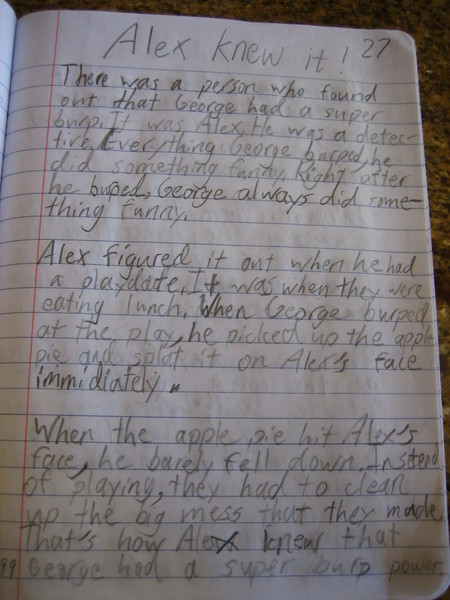 Alex knew it! 27
There was a person who found
out that George had a super
burp. It was Alex. He was a detec-
tive. Everything George burped, he
did something funny. Right after
he buped, George always did some-
thing funny.
Alex figured it out when he had
a playdate. It was when they were
eating lunch. When George burped
at the play, he picked up the apple
pie and splat it on Alex's face
immidiately.
When the apple pie hit Alex's
face, he barely fell down. Instead
of playing, they had to clean
up the big mess that they made.
That's how Alex knew that
99 George had a super burp power